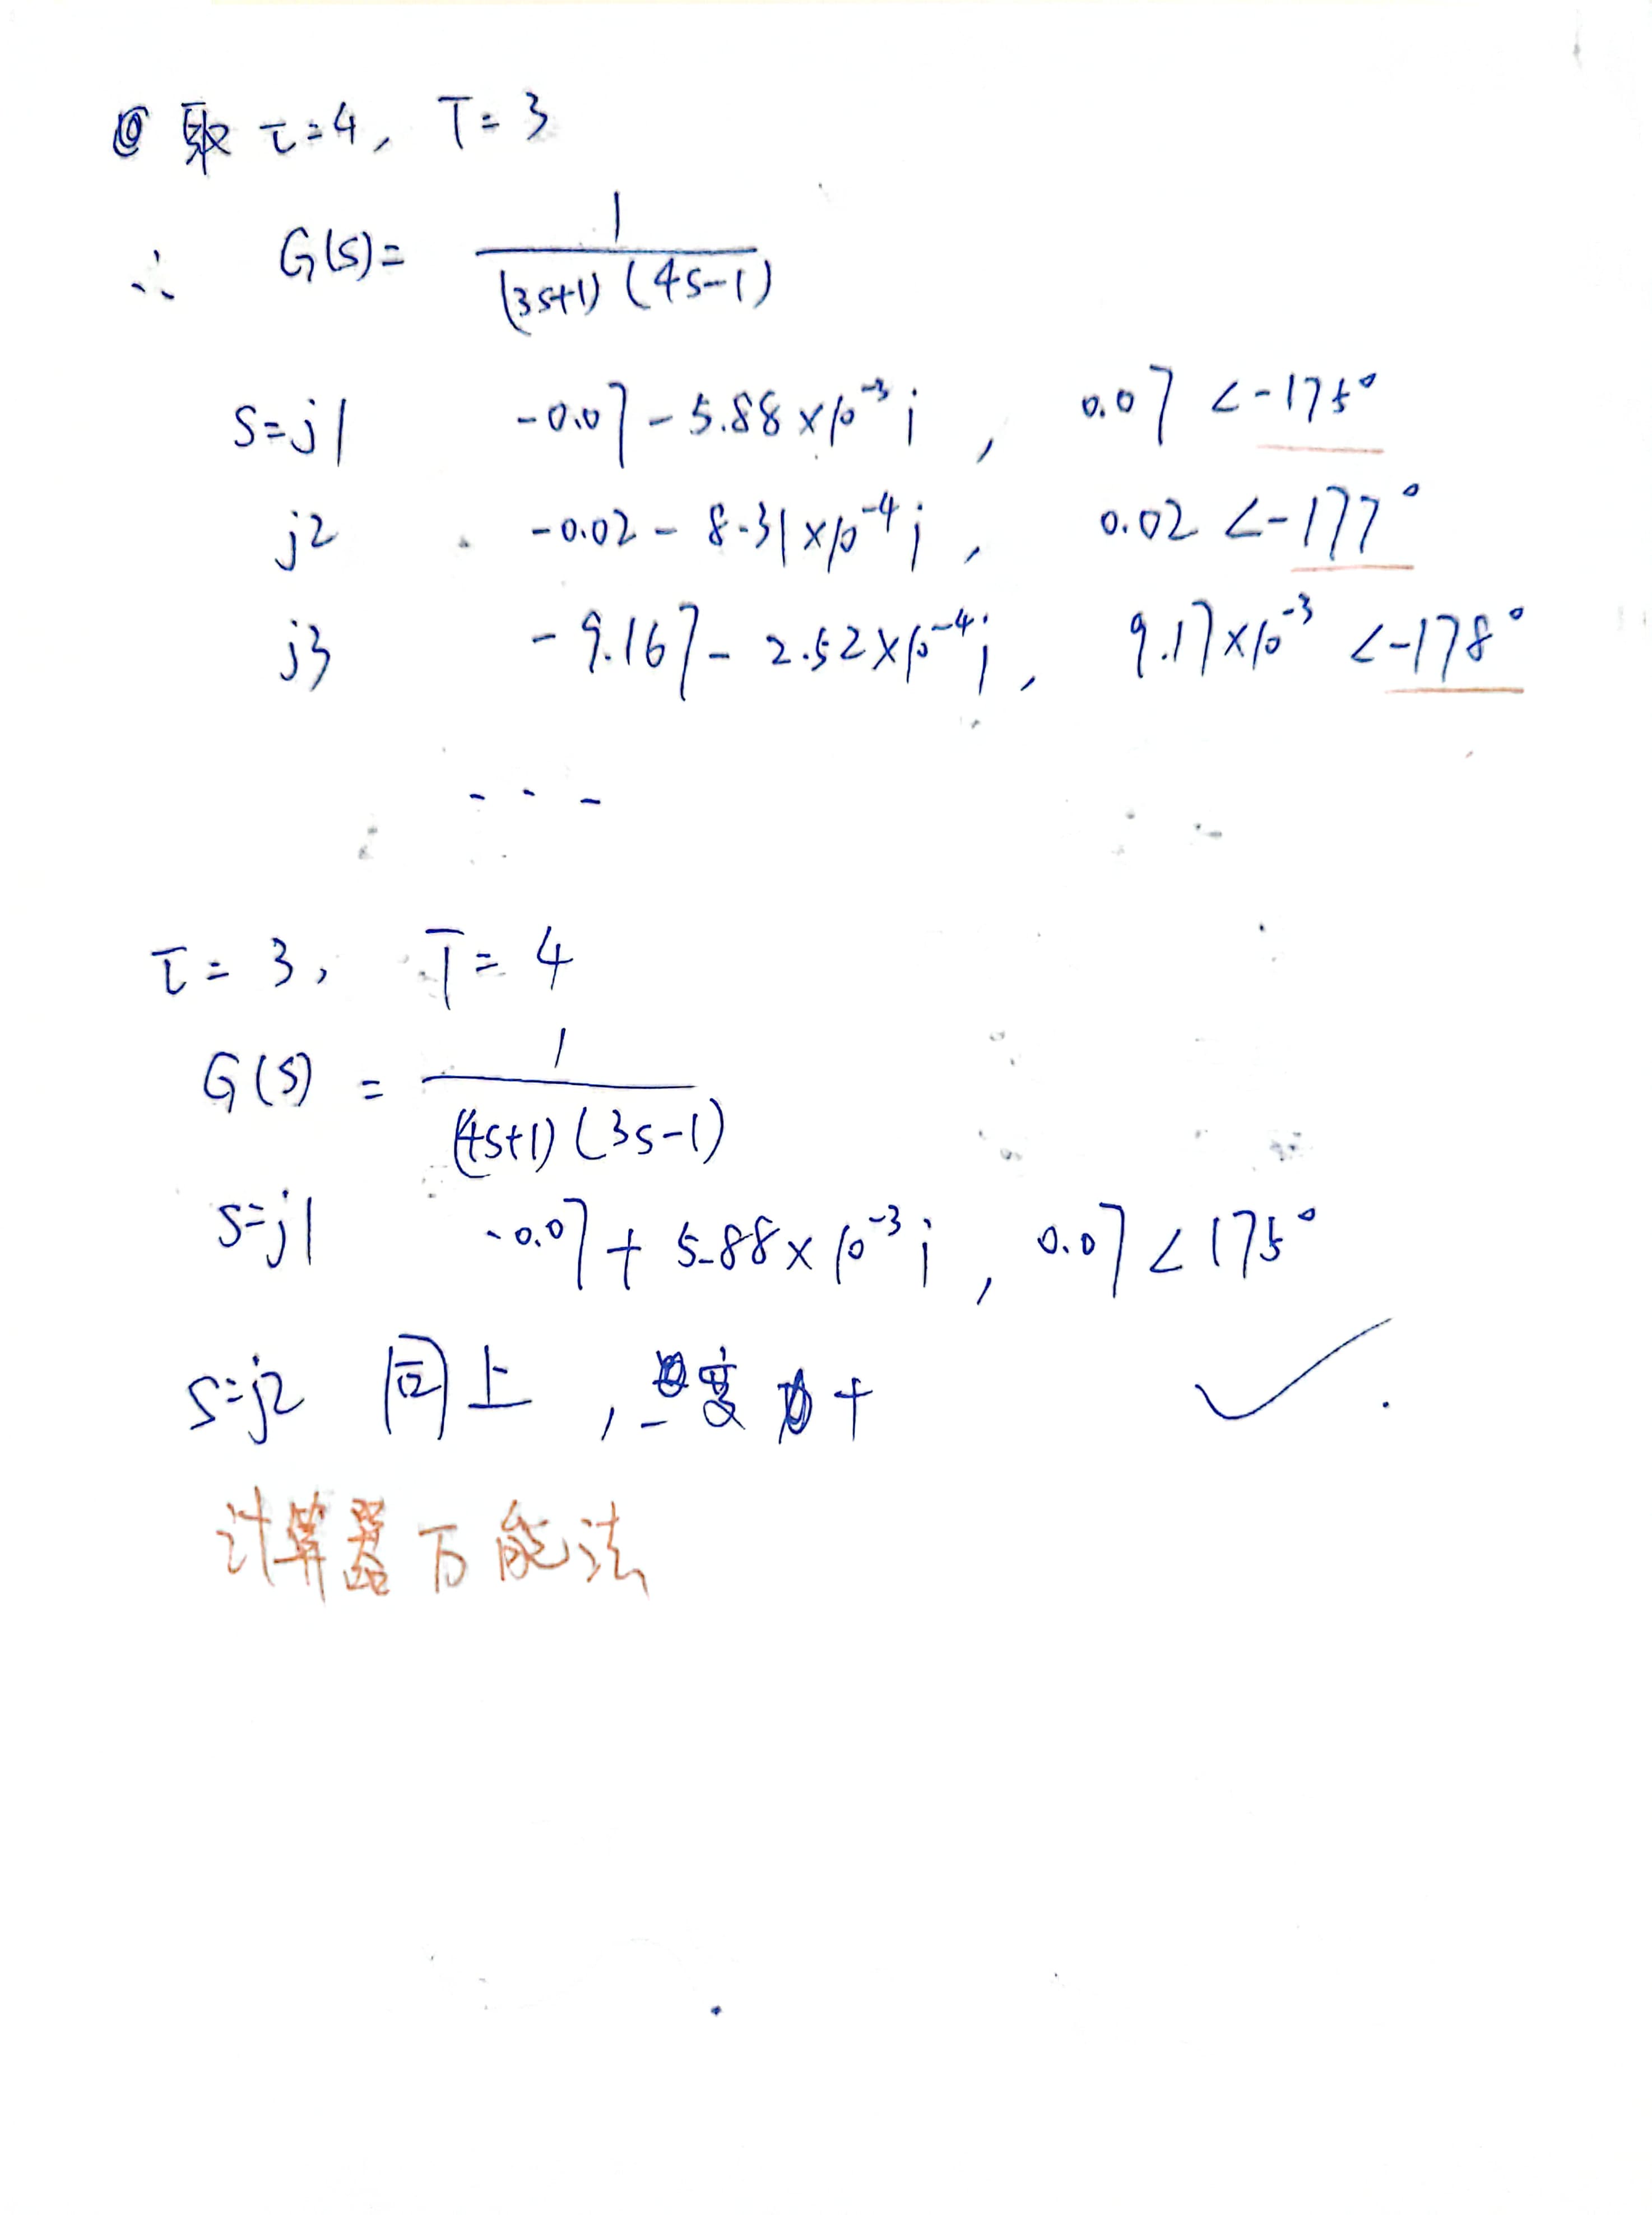 ② 取 τ=4, T=3
∴ G(s)= 1/((3s+1)(4s-1))
s=j1 -0.07-5.88×10⁻³i, 0.07∠-175°
j2 -0.02-8.31×10⁻⁴i, 0.02∠-177°
j3 -9.167-2.52×10⁻⁴i, 9.17×10⁻³∠-178°
...
τ=3, T=4
G(s) = 1/((4s+1)(3s-1))
s=j1 -0.07+5.88×10⁻³i, 0.07∠175°
s=j2 同上, -变+
计算器万能法